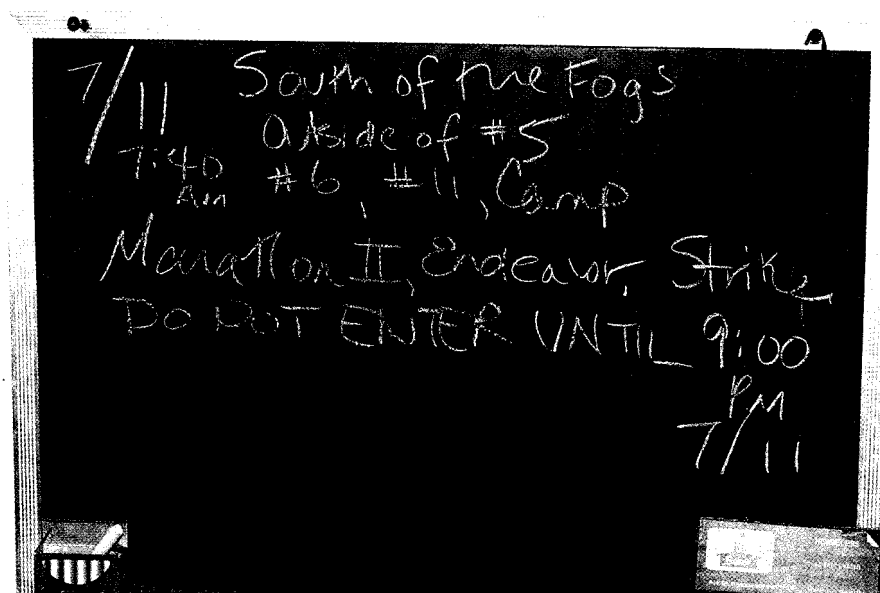 7/11 South of the Fogs
Outside of #5
7:40 Am #6, #11, Camp
Marathon II, Endeavor, Strike
DO NOT ENTER UNTIL 9:00
PM
7/11